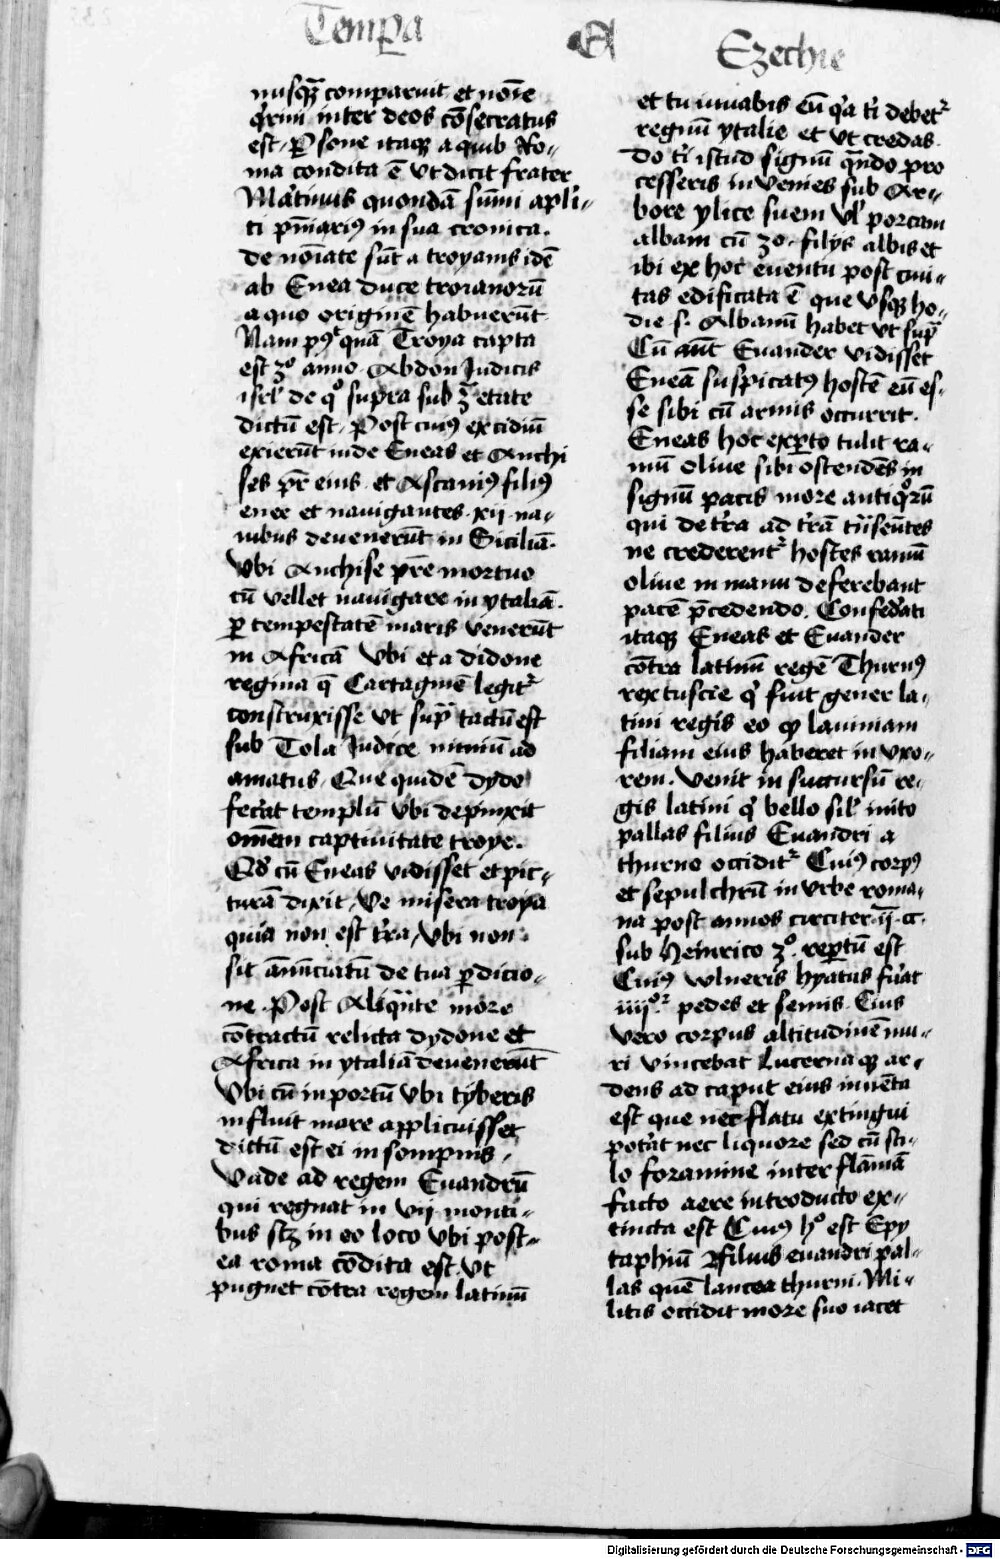 Temp̱a A Ezechie
nusq̃ comparuit et nōīe
q̇rini inter deos cōsecratus
est. P̱sone itaqꝫ a quib Ro-
ma condita ē vt dicit frater
Martinus quondā sūmi apl'i-
ti pn̄iarẏ in sua cronica.
de noīate sūt a troyanis idē
ab Enea duce troianorū
a quo originē habuerūt
Nam pꝰq̃ quā Troya capta
est 3º anno Abdon Iudicis
isrl' de qº supra sub 3ª etate
dictū est. Post cuiꝰ excidiū
exierūt inde Eneas et Anchi
ses pr̄ eius et Ascaniꝰ filiꝰ
enee et nauigantes xij na-
uibus deuenerūt in Siciliā.
Vbi Anchise pr̄e mortuo
cū vellet nauigare in ytaliā.
ꝑ tempestatē maris venerūt
in Africā Vbi et a didone
regina q̄ Cartaginē legitᷣ
construxisse vt supᷓ tactū est
sub Tola Iudice nimiū ad
amatus. Que quidē dydo
fecat templū vbi depinxit
omēm captiuitate troye.
Qd' cū Eneas vidisset et pic-
turā dixit, Ve misera troya
quia non est tr̄a, vbi non
sit an̄uciatū de tua ꝑdicio-
ne. Post Aliqᷓnte more
cōtractū relicta dydone et
Africa in ytaliā deuenerūt
Vbi cū in portū vbi tyberis
influit mare applicuisset
dictū est ei in sompnis,
Vade ad regem Euandrū
qui regnat in vij monti-
bus scꝫ in eo loco vbi post-
ea roma cōdita est vt
pugnet cōtra regem latinū
et tu iuuabis eū q̇a ti debetᷣ
regnū ytalie et vt credas.
do ti istud signū qn̄do pro
cesseris inuenies sub Ar-
bore ylice suem vl' porcam
albam cū 30. filijs albis et
ibi ex hoc euentu post ciui-
tas edificata ē que vsqꝫ ho-
die s. Albanū habet vt supᷓ
Cū aūt Euander vidisset
Eneā suspicatꝰ hostē eū es-
se sibi cū armis occurrit.
Eneas hoc exꝑto tulit ra-
mū oliue sibi ostendēs in
signū pacis more antiqͦrū
qui de tra ad trā tn̄seūtes
ne crederentᷣ hostes ramū
oliue in manu deferebant
pacē p̄cedendo. Confedati
itaqꝫ Eneas et Euander
cōtra latinū regē Thurnꝰ
rex tuscie qͥ fuit gener la-
tini regis eo qꝙ lauiniam
filiam eius haberet in vxo-
rem. Venit in succursū re-
gis latini qͥ bello sil' inito
pallas filius Euandri a
thurno occiditᷣ Cuiꝰ corpꝰ
et sepulchrū in vrbe roma-
na post annos circiter ij cc.
sub Heinrico 3º. reꝑtū est
Cuiꝰ vulneris hyatus fuat
iiijᵒʳ pedes et semis. Eius
vero corpus altitudinē mu-
ri vincebat Lucerna qꝫ ar-
dens ad caput eius inuēta
est que nec flatu extingui
potat nec liquore sed cū sti-
lo foramine inter flāmā
facto aere introducto ex-
tincta est Cuiꝰ hº est Epy
taphiū Filius euandri pal-
las quē lancea thurni Mi-
litis occidit more suo iacet
Digitalisierung gefördert durch die Deutsche Forschungsgemeinschaft - DFG